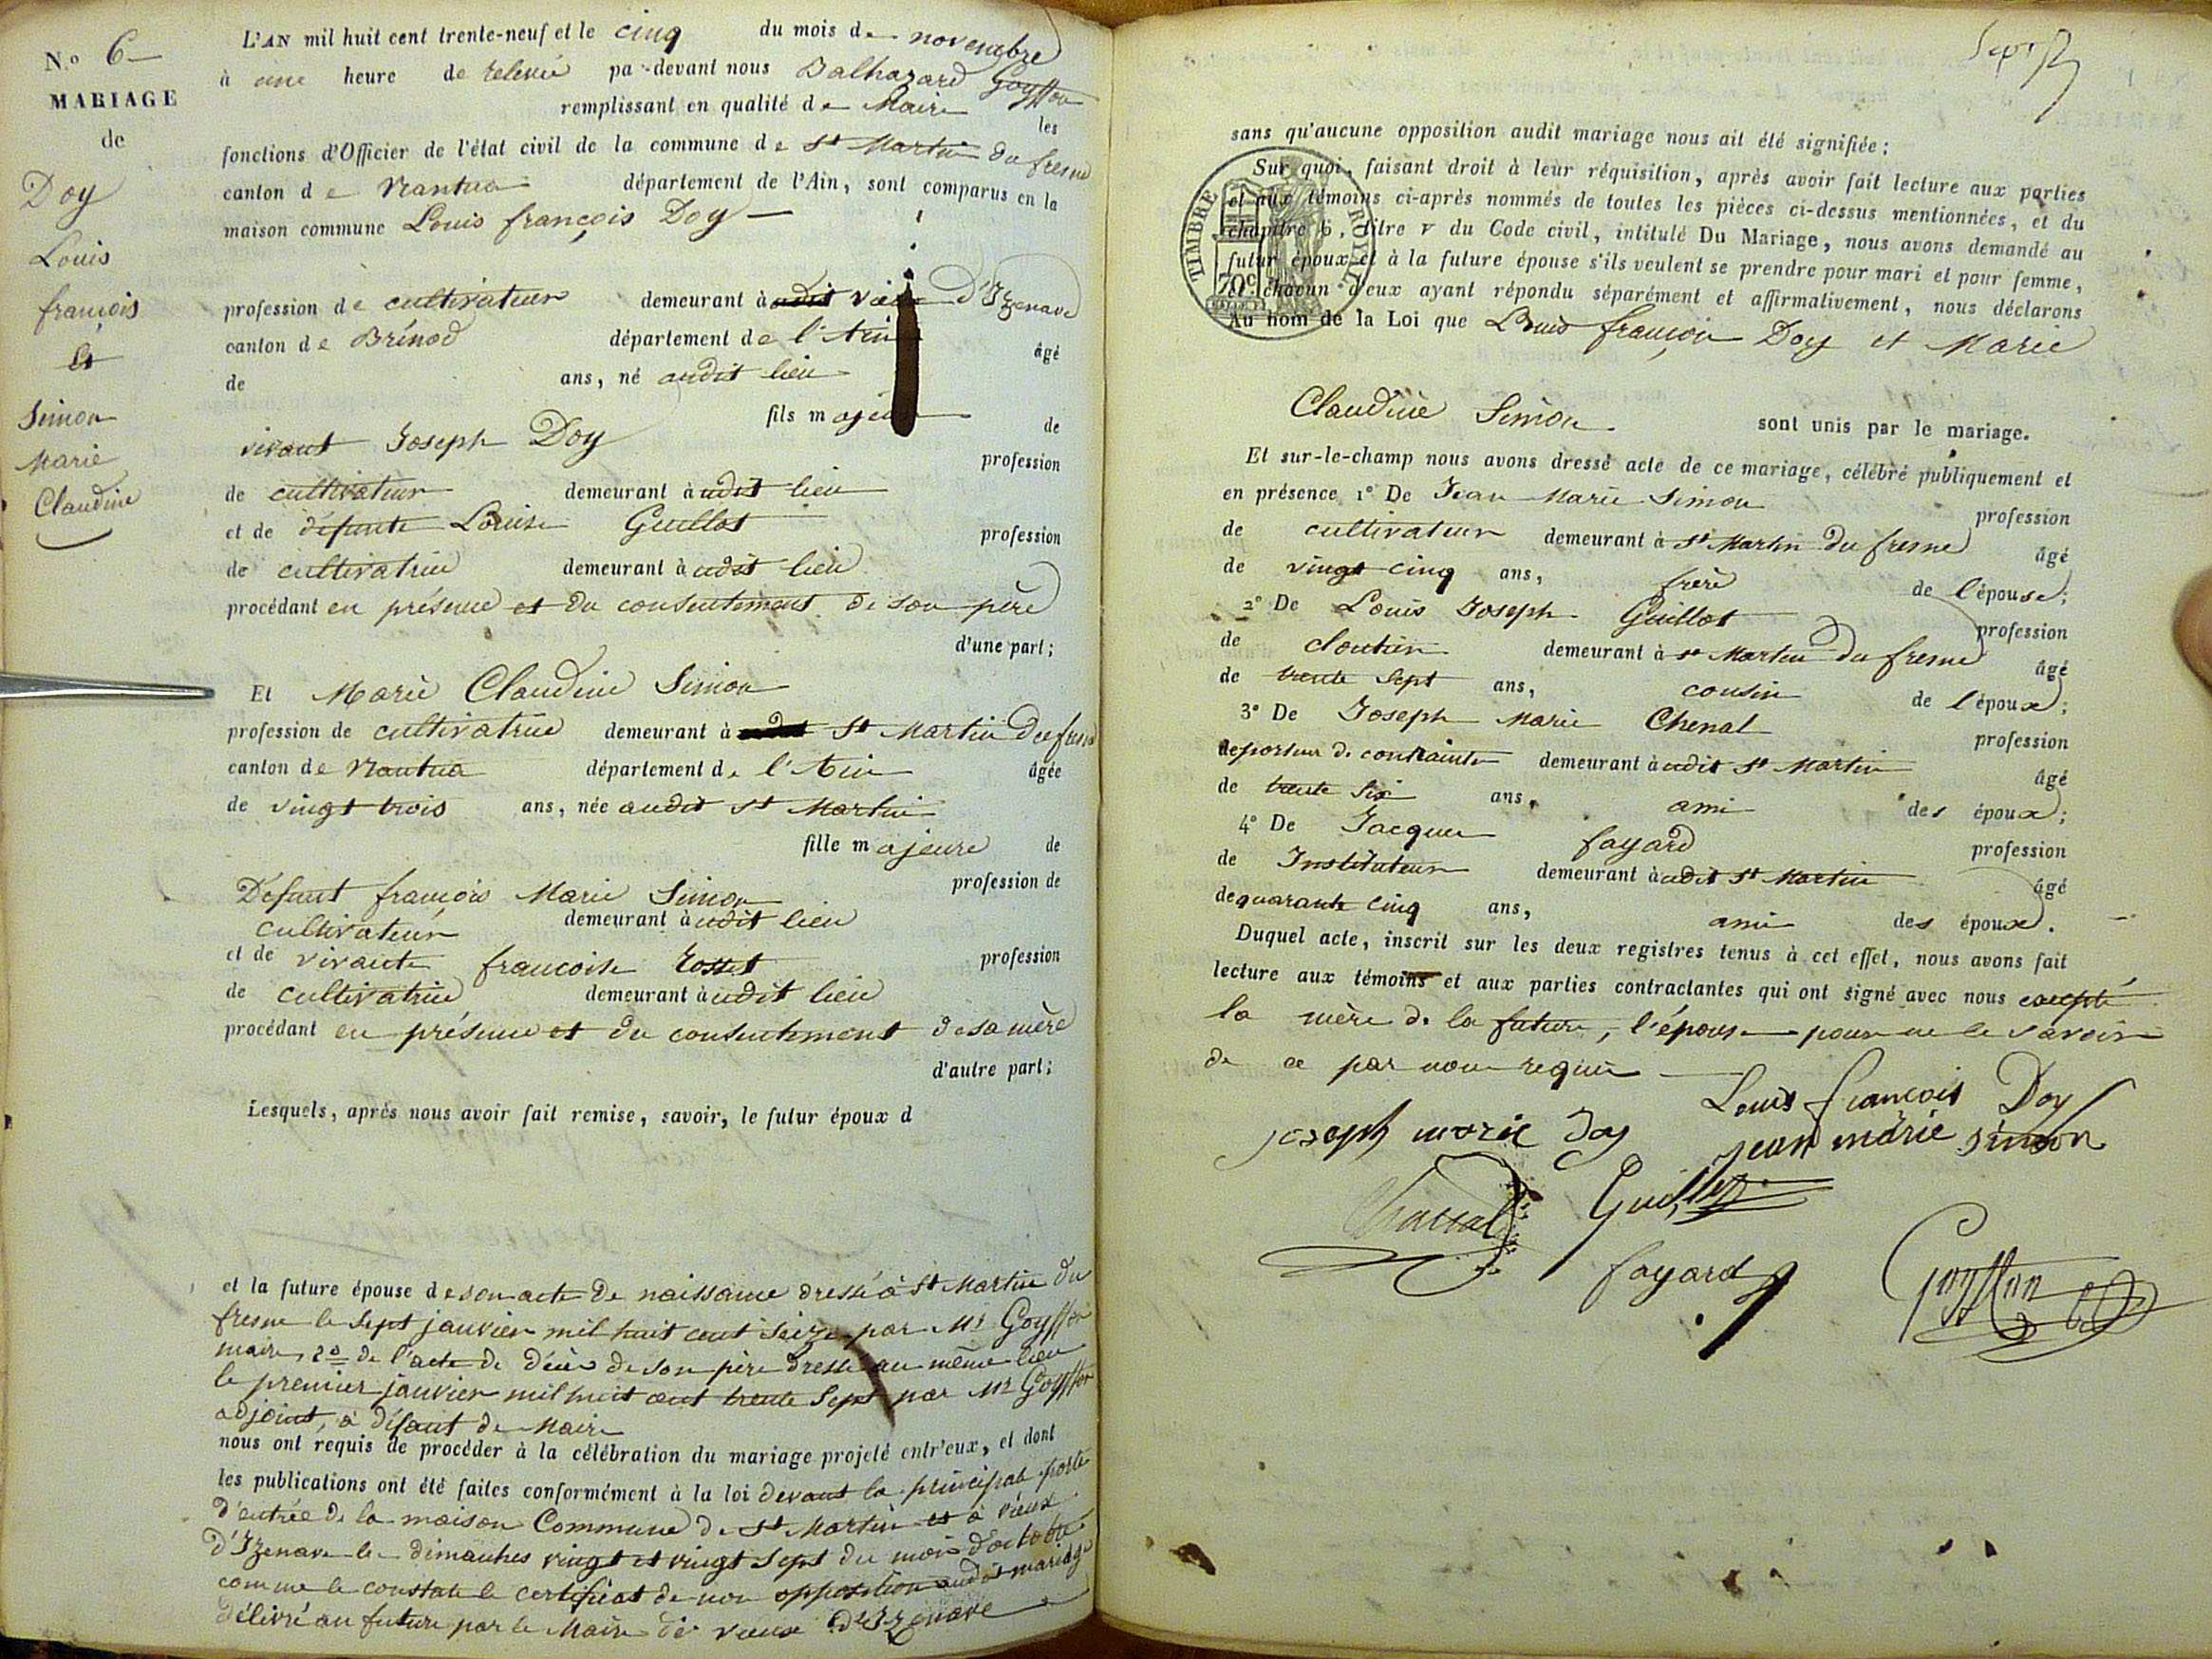 N.º 6
MARIAGE
de
Doy
Louis
françois
Et
Simon
Marie
Claudine
L'AN mil huit cent trente-neuf et le cinq du mois de novembre
à une heure de relevée pa-devant nous Balthazard Goyffon
remplissant en qualité de Maire les
fonctions d'Officier de l'état civil de la commune de St Martin du fresne
canton de Nantua département de l'Ain, sont comparus en la
maison commune Louis françois Doy
profession de cultivateur demeurant à vieux d'Izenave
canton de Brénod département de l'Ain âgé
de ans, né audit lieu
fils majeur de
vivant Joseph Doy profession
de cultivateur demeurant àudit lieu
et de défunte Louise Guillot profession
de cultivatrice demeurant àudit lieu
procédant en présence et du consentement de son père
d'une part;
Et Marie Claudine Simon
profession de cultivatrice demeurant à St Martin du fresne
canton de Nantua département de l'Ain âgée
de vingt trois ans, née audit St Martin
fille majeure de
Défunt françois Marie Simon profession de
cultivateur demeurant àudit lieu
et de vivante francoise Rosset profession
de cultivatrice demeurant àudit lieu
procédant en présence et du consentement de sa mère
d'autre part;
Lesquels, après nous avoir fait remise, savoir, le futur époux d
et la future épouse de son acte de naissance dressé à St Martin du
fresne le sept janvier mil huit cent seize par Mr Goyffon
maire, 2º de l'acte de décès de son père dressé au même lieu
le premier janvier mil huit cent trente sept par Mr Goyffon
adjoint, à défaut de Maire
nous ont requis de procéder à la célébration du mariage projeté entr'eux, et dont
les publications ont été faites conformément à la loi devant la principale porte
d'entrée de la maison Commune de St Martin et à vieux
d'Izenave les dimanches vingt et vingt sept du mois d'octobre
comme le constate le certificat de non opposition audit mariage
délivré au future par le Maire de vieux d'Izenave
Sept
sans qu'aucune opposition audit mariage nous ait été signifiée;
Sur quoi, faisant droit à leur réquisition, après avoir fait lecture aux parties
et aux témoins ci-après nommés de toutes les pièces ci-dessus mentionnées, et du
chapitre 6, titre V du Code civil, intitulé Du Mariage, nous avons demandé au
futur époux et à la future épouse s'ils veulent se prendre pour mari et pour femme,
et chacun d'eux ayant répondu séparément et affirmativement, nous déclarons
TIMBRE ROYAL
70c
Au nom de la Loi que Louis françois Doy et Marie
Claudine Simon sont unis par le mariage.
Et sur-le-champ nous avons dressé acte de ce mariage, célébré publiquement et
en présence 1º De Jean Marie Simon profession
de cultivateur demeurant à St Martin du fresne âgé
de vingt cinq ans, frère de l'épouse;
2º De Louis Joseph Guillot profession
de cloutier demeurant à St Martin du fresne âgé
de trente sept ans, cousin de l'époux;
3º De Joseph Marie Chenal profession
de porteur de contrainte demeurant àudit St Martin âgé
de trente six ans, ami des époux;
4º De Jacques fayard profession
de Instituteur demeurant àudit St Martin âgé
de quarante cinq ans, ami des époux.
Duquel acte, inscrit sur les deux registres tenus à cet effet, nous avons fait
lecture aux témoins et aux parties contractantes qui ont signé avec nous excepté
la mère de la future, l'épouse pour ne le savoir
de ce par nous requis
Louis françois Doy
joseph marie Doy jean marie simon
Guillot
fayard Goyffon